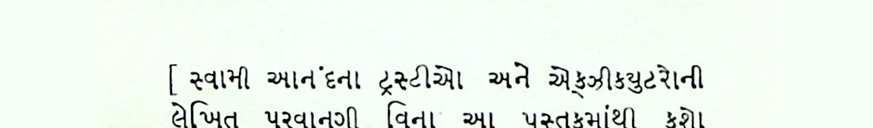 [ સ્વામી આનંદના ટ્રસ્ટીઓ અને એક્ઝીક્યુટરોની
લેખિત પરવાનગી વિના આ પુસ્તકમાંથી કશો